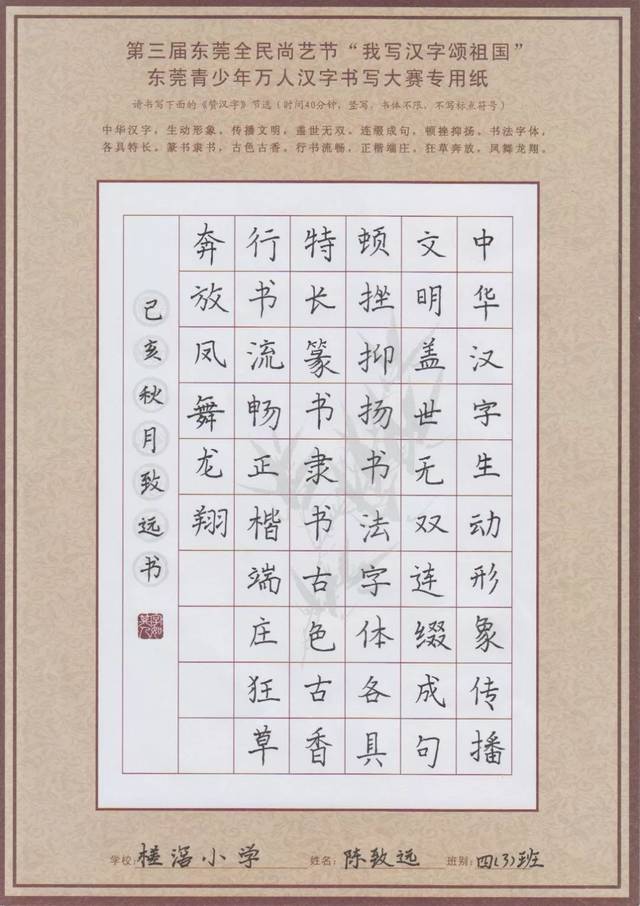 第三届东莞全民尚艺节“我写汉字颂祖国”
东莞青少年万人汉字书写大赛专用纸
请书写下面的《赞汉字》节选（时间40分钟，竖写，书体不限，不写标点符号）
中华汉字，生动形象。传播文明，盖世无双。连缀成句，顿挫抑扬。书法字体，
各具特长。篆书隶书，古色古香。行书流畅，正楷端庄。狂草奔放，凤舞龙翔。
中华汉字生动形象传播
文明盖世无双连缀成句
顿挫抑扬书法字体各具
特长篆书隶书古色古香
行书流畅正楷端庄狂草
奔放凤舞龙翔
己亥秋月致远书
学校：滘小学 姓名：陈致远 班别：四(3)班